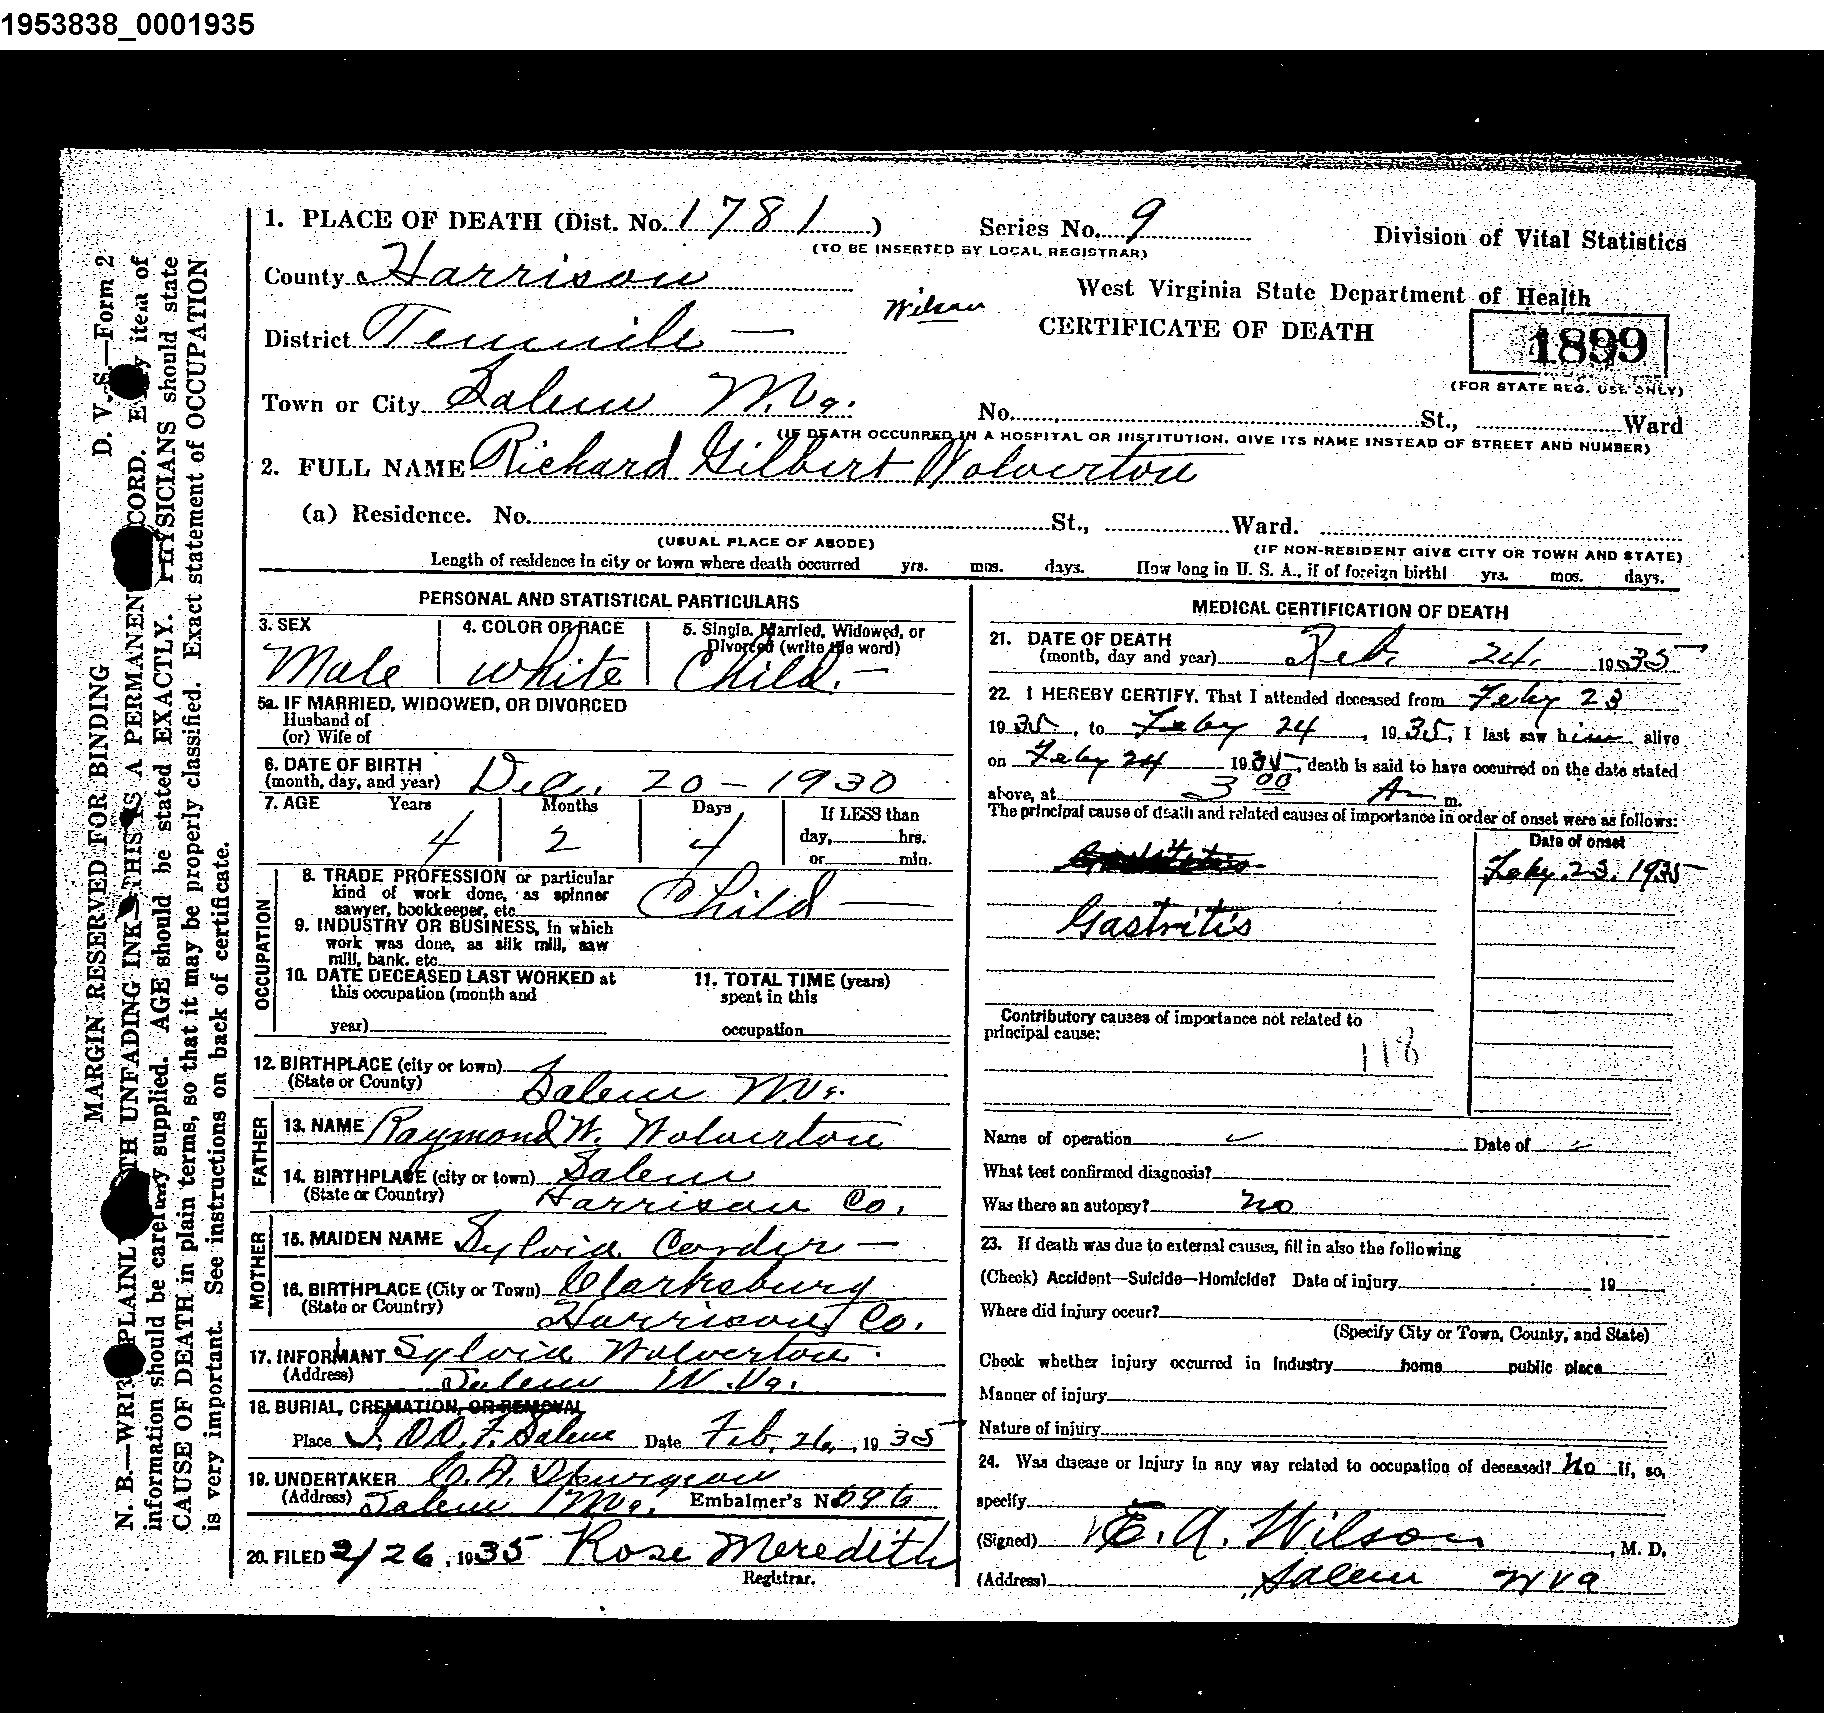 1953838_0001935
1. PLACE OF DEATH (Dist. No. 1781 ) Series No. 9 Division of Vital Statistics
(TO BE INSERTED BY LOCAL REGISTRAR)
County Harrison West Virginia State Department of Health
Wilson
District Tenmile — CERTIFICATE OF DEATH 1899
(FOR STATE REG. USE ONLY)
Town or City Salem W.Va. No. St., Ward
(IF DEATH OCCURRED IN A HOSPITAL OR INSTITUTION, GIVE ITS NAME INSTEAD OF STREET AND NUMBER)
2. FULL NAME Richard Gilbert Wolverton
(a) Residence. No. St., Ward.
(USUAL PLACE OF ABODE) (IF NON-RESIDENT GIVE CITY OR TOWN AND STATE)
Length of residence in city or town where death occurred yrs. mos. days. How long in U. S. A., if of foreign birth? yrs. mos. days.
PERSONAL AND STATISTICAL PARTICULARS
3. SEX 4. COLOR OR RACE 5. Single, Married, Widowed, or
Divorced (write the word)
Male white Child.—
5a. IF MARRIED, WIDOWED, OR DIVORCED
Husband of
(or) Wife of
6. DATE OF BIRTH
(month, day, and year) Dec. 20 - 1930
7. AGE Years Months Days If LESS than
4 2 4 day, hrs.
or min.
OCCUPATION
8. TRADE PROFESSION or particular
kind of work done, as spinner
sawyer, bookkeeper, etc. Child —
9. INDUSTRY OR BUSINESS, in which
work was done, as silk mill, saw
mill, bank, etc.
10. DATE DECEASED LAST WORKED at
this occupation (month and
year)
11. TOTAL TIME (years)
spent in this
occupation
12. BIRTHPLACE (city or town)
(State or County) Salem W.Va.
FATHER
13. NAME Raymond W. Wolverton
14. BIRTHPLACE (city or town) Salem
(State or Country) Harrison Co.
MOTHER
15. MAIDEN NAME Sylvia Corder —
16. BIRTHPLACE (City or Town) Clarksburg
(State or Country) Harrison Co.
17. INFORMANT Sylvia Wolverton.
(Address) Salem W.Va.
18. BURIAL, CREMATION, OR REMOVAL
Place I.O.O.F. Salem Date Feb. 26, 1935
19. UNDERTAKER O.A. Spurgeon
(Address) Salem W.Va. Embalmer's No 696
20. FILED 2/26, 1935 Rose Meredith
Registrar.
MEDICAL CERTIFICATION OF DEATH
21. DATE OF DEATH
(month, day and year) Feb. 24. 1935
22. I HEREBY CERTIFY, That I attended deceased from Feby 23
1935, to Feby 24, 1935, I last saw him alive
on Feby 24 1935, death is said to have occurred on the date stated
above, at 3 00 A m.
The principal cause of death and related causes of importance in order of onset were as follows:
Date of onset
Feby. 23. 1935
Gastritis
Contributory causes of importance not related to
principal cause:
118
Name of operation Date of
What test confirmed diagnosis?
Was there an autopsy? no
23. If death was due to external causes, fill in also the following
(Check) Accident—Suicide—Homicide? Date of injury 19
Where did injury occur?
(Specify City or Town, County, and State)
Check whether injury occurred in industry home public place
Manner of injury
Nature of injury
24. Was disease or injury in any way related to occupation of deceased? No If, so,
specify
(Signed) E. A. Wilson, M. D.
(Address) Salem W Va
MARGIN RESERVED FOR BINDING D. V. S.—Form 2
N. B.—WRITE PLAINL TH UNFADING INK—THIS IS A PERMANEN CORD. E y item of
information should be carefully supplied. AGE should be stated EXACTLY. PHYSICIANS should state
CAUSE OF DEATH in plain terms, so that it may be properly classified. Exact statement of OCCUPATION
is very important. See instructions on back of certificate.